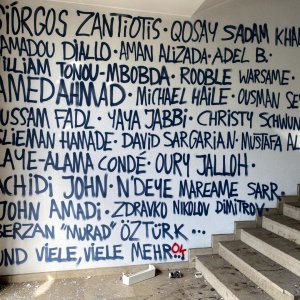 GIÓRGOS ZANTIOTIS · QOSAY SADAM KHAL
AMADOU DIALLO · AMAN ALIZADA · ADEL B.
WILLIAM TONOU-MBOBDA · ROOBLE WARSAME ·
AMED AHMAD · MICHAEL HAILE · OUSMAN SEY
HUSSAM FADL · YAYA JABBI · CHRISTY SCHWUN
SLIEMAN HAMADE · DAVID SARGARIAN · MUSTAFA AL
LAYE-ALAMA CONDÉ · OURY JALLOH ·
ACHIDI JOHN · N'DEYE MAREAME SARR ·
JOHN AMADI · ZDRAVKO NIKOLOV DIMITROV ·
BERZAN "MURAD" ÖZTÜRK ...
UND VIELE, VIELE MEHR...